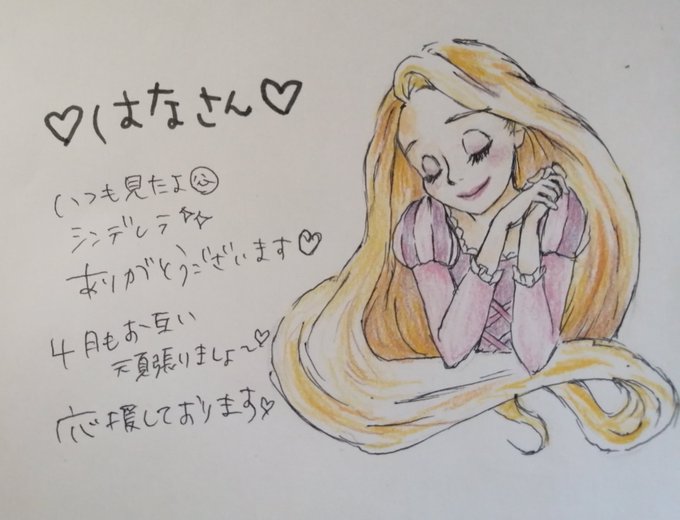 ♡はなさん♡
いつも見たよ㊡
シンデレラ✨
ありがとうございます♡
4月もお互い
頑張りましょ〜♡
応援しております♡